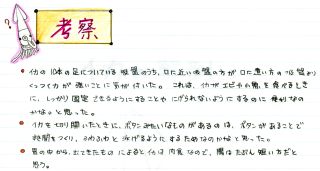 ?
考察
• イカの10本の足についている吸盤のうち、口に近い吸盤の方が口に遠い方の吸盤より
くっつく力が強いことに気が付いた。これは、イカがエビや小魚を食べるとき
に、しっかり固定できるようにすることやにげられないようにするのに便利なの
かなぁと思った。
• イカを切り開いたときに、ボタンみたいなものがあるのは、ボタンがあることで
時間をつくり、ふわふわと泳げるようにするためなのかなと思った。
• 胃の中から出てきたものによるとイカは肉食なので、腸はたぶん短い方だと
思う。